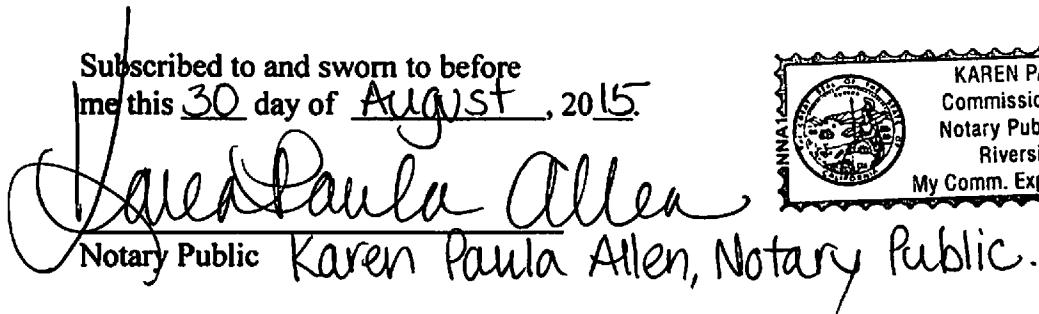 Subscribed to and sworn to before
me this 30 day of August, 2015.
Karen Paula Allen
Notary Public Karen Paula Allen, Notary Public.
KAREN PA
Commissio
Notary Pub
Riversi
My Comm. Exp
NNA1
CALIFORNIA